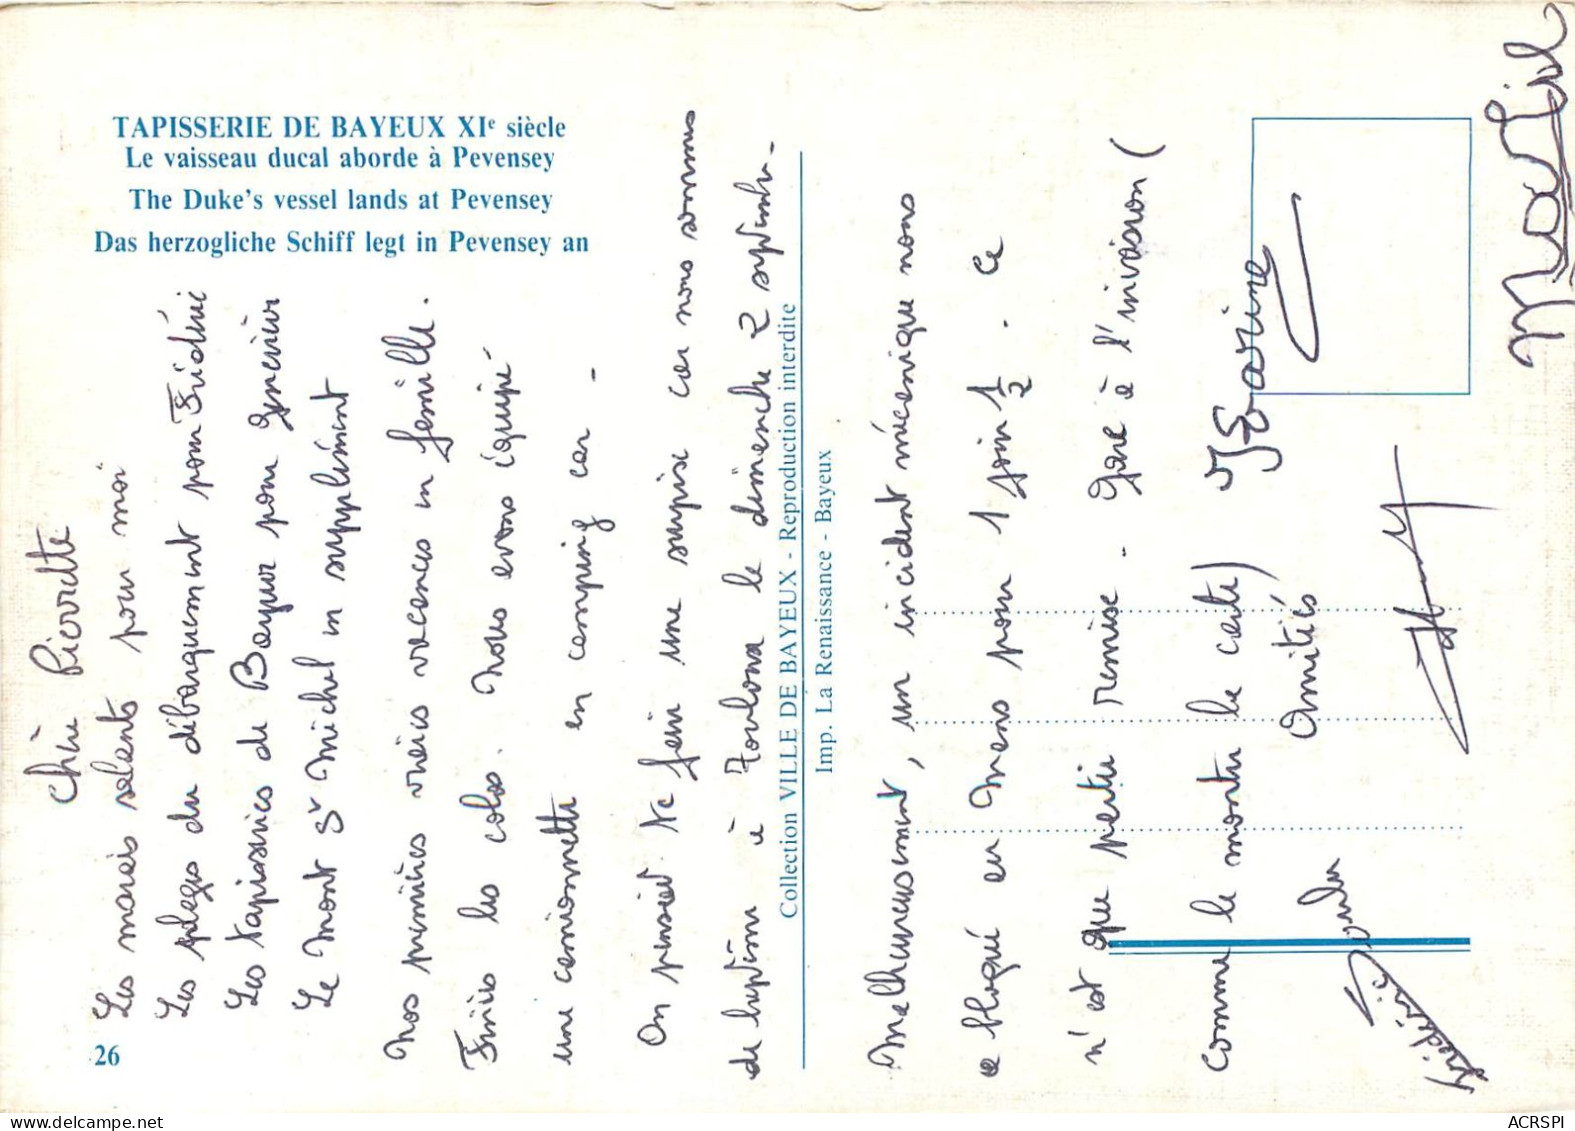 TAPISSERIE DE BAYEUX XIe siècle
Le vaisseau ducal aborde à Pevensey
The Duke's vessel lands at Pevensey
Das herzogliche Schiff legt in Pevensey an
26
Chère Pierrette
Les marais salants pour moi
Les plages du débarquement pour Frédéric
Les tapisseries de Bayeux pour
Le Mont St Michel en supplément
Nos premières vraies vacances en famille.
Finies les colos. Nous avons équipé
une camionnette en camping car -
On pensait te faire une surprise car nous sommes
de à Toulona le dimanche 2 septembre -
Collection VILLE DE BAYEUX - Reproduction interdite
Imp. La Renaissance - Bayeux
Malheureusement, un incident mécanique nous
a bloqué en Mans pour 1 jour 1/2. Ce
n'est que partie remise - Gare à l'invasion (
comme le montre la carte)
Amitiés
Karine
Frédéric
ACRSPI